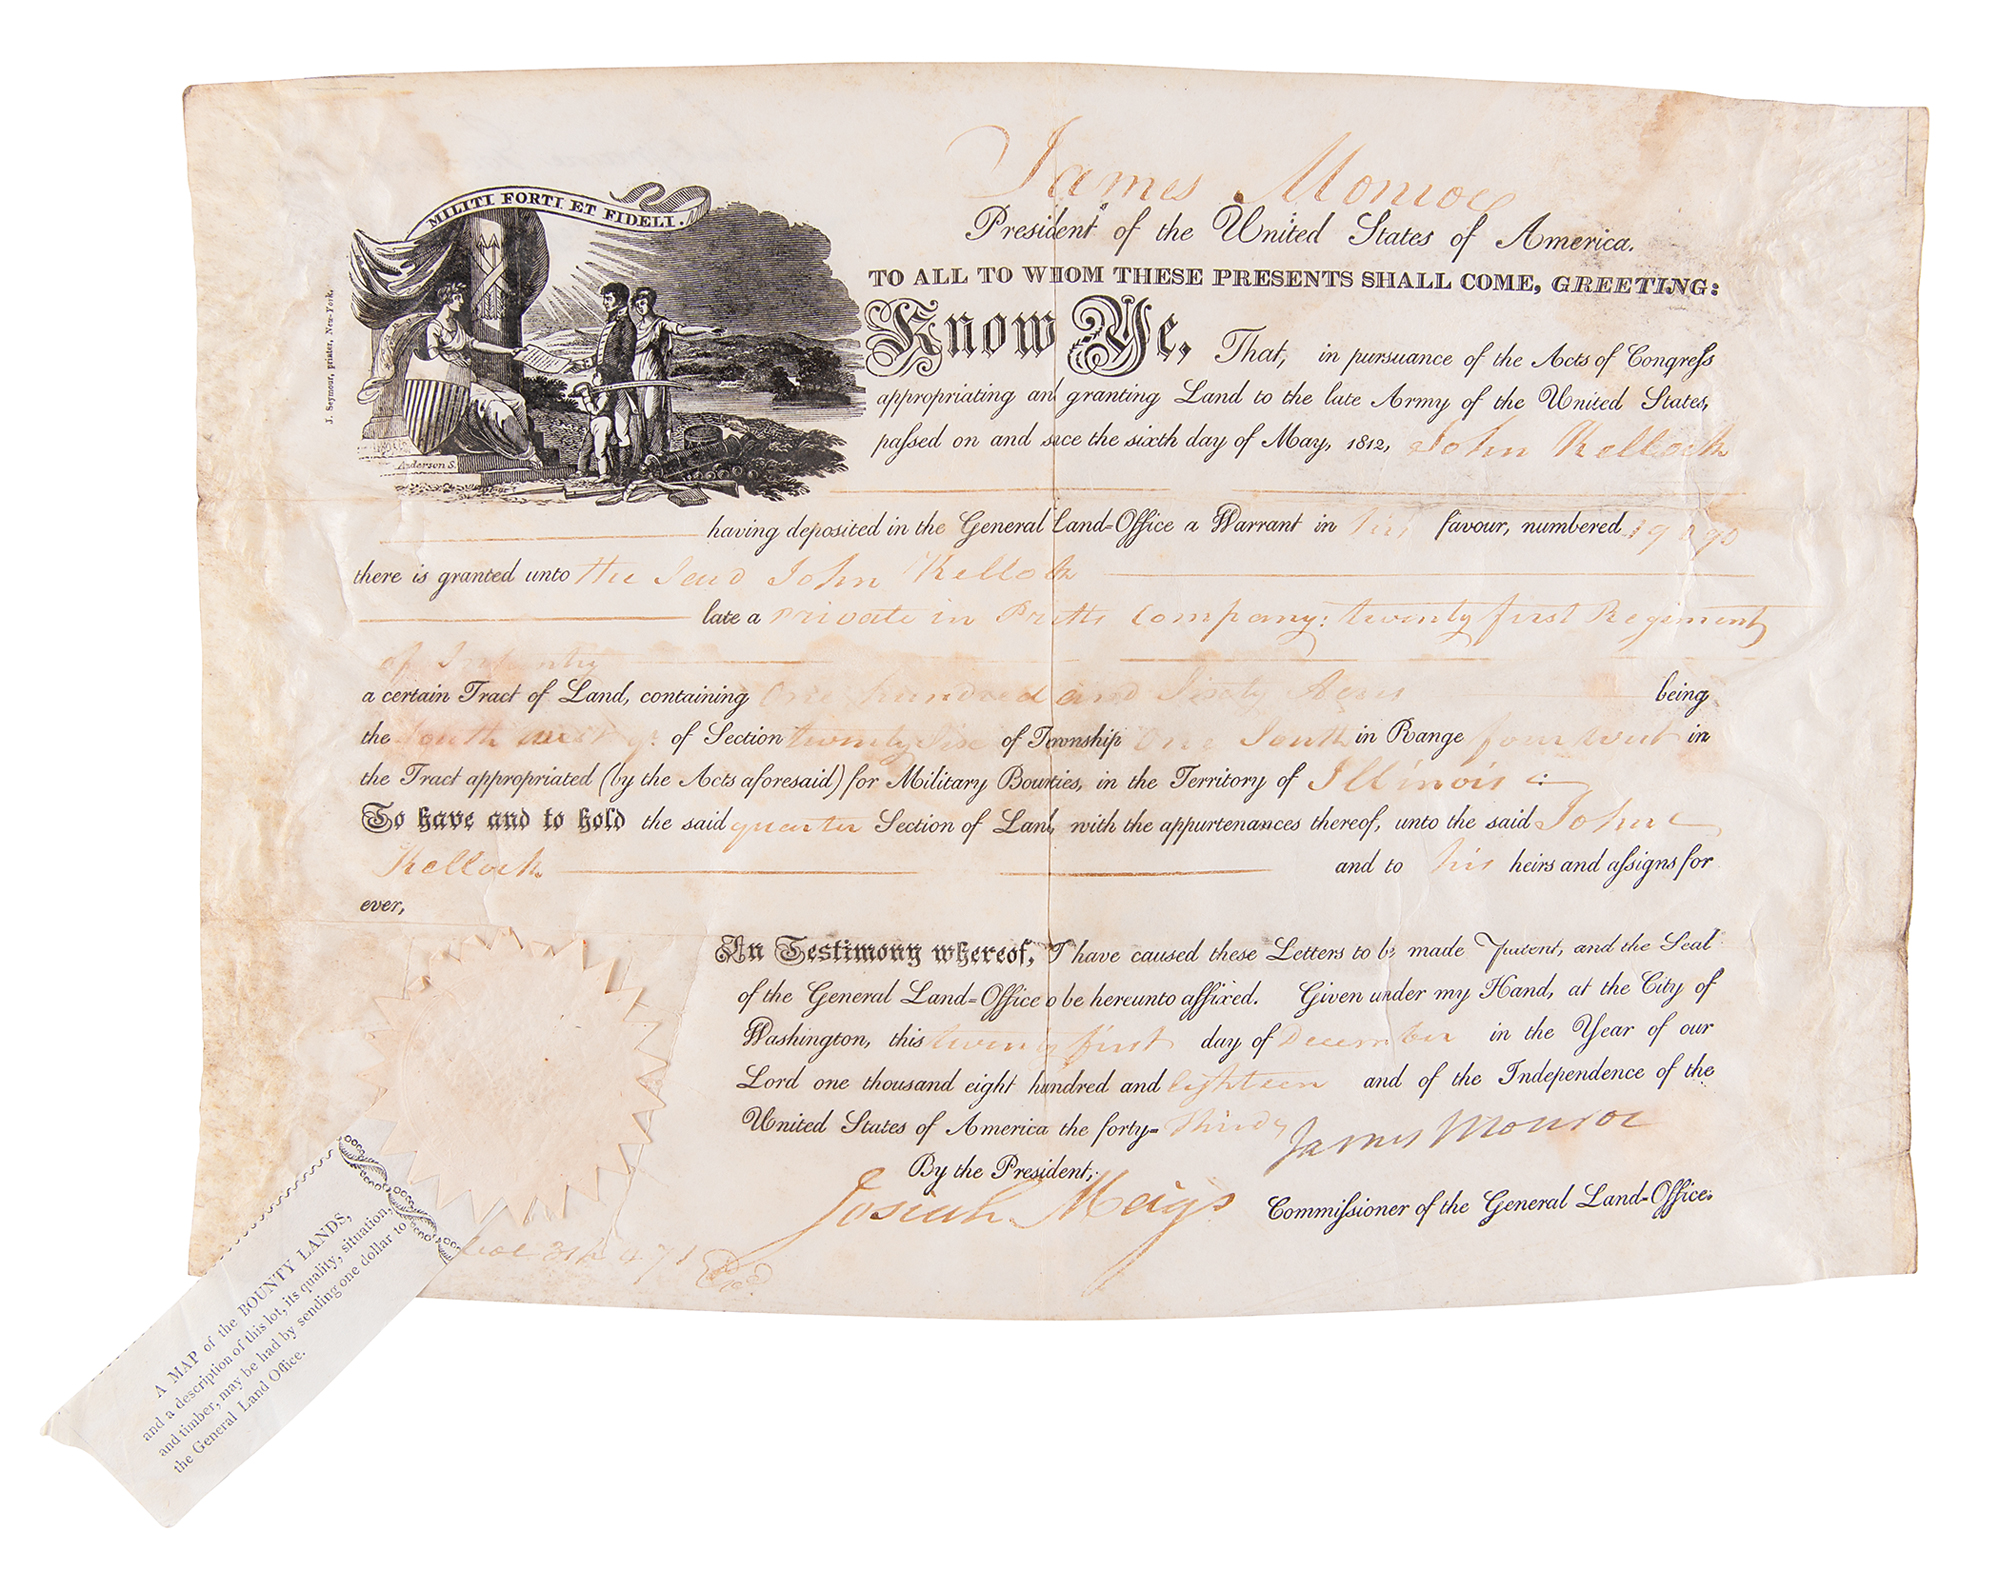 James Monroe
President of the United States of America.
TO ALL TO WHOM THESE PRESENTS SHALL COME, GREETING:
MILITI FORTI ET FIDELI.
J. Seymour, printer, New-York.
Anderson S.
Know Ye, That, in pursuance of the Acts of Congreſs
appropriating and granting Land to the late Army of the United States,
paſsed on and since the sixth day of May, 1812, John Kellock
having deposited in the General Land-Office a Warrant in his favour, numbered
there is granted unto the said John Kellock
late a private in Company; twenty first Regiment
of Infantry
a certain Tract of Land, containing One hundred and Sixty Acres being
the South west qr. of Section twenty six of Township One South in Range four west in
the Tract appropriated (by the Acts aforesaid) for Military Bounties, in the Territory of Illinois:
To have and to hold the said quarter Section of Land, with the appurtenances thereof, unto the said John
Kellock and to his heirs and aſsigns for
ever,
In Testimony whereof, I have caused these Letters to be made Patent, and the Seal
of the General Land-Office to be hereunto affixed. Given under my Hand, at the City of
Washington, this twenty first day of December in the Year of our
Lord one thousand eight hundred and eighteen and of the Independence of the
United States of America the forty-third James Monroe
By the President,
Josiah Meigs Commiſsioner of the General Land-Office.
A MAP of the BOUNTY LANDS,
and a description of this lot, its quality, situation,
and timber, may be had by sending one dollar to
the General Land Office.